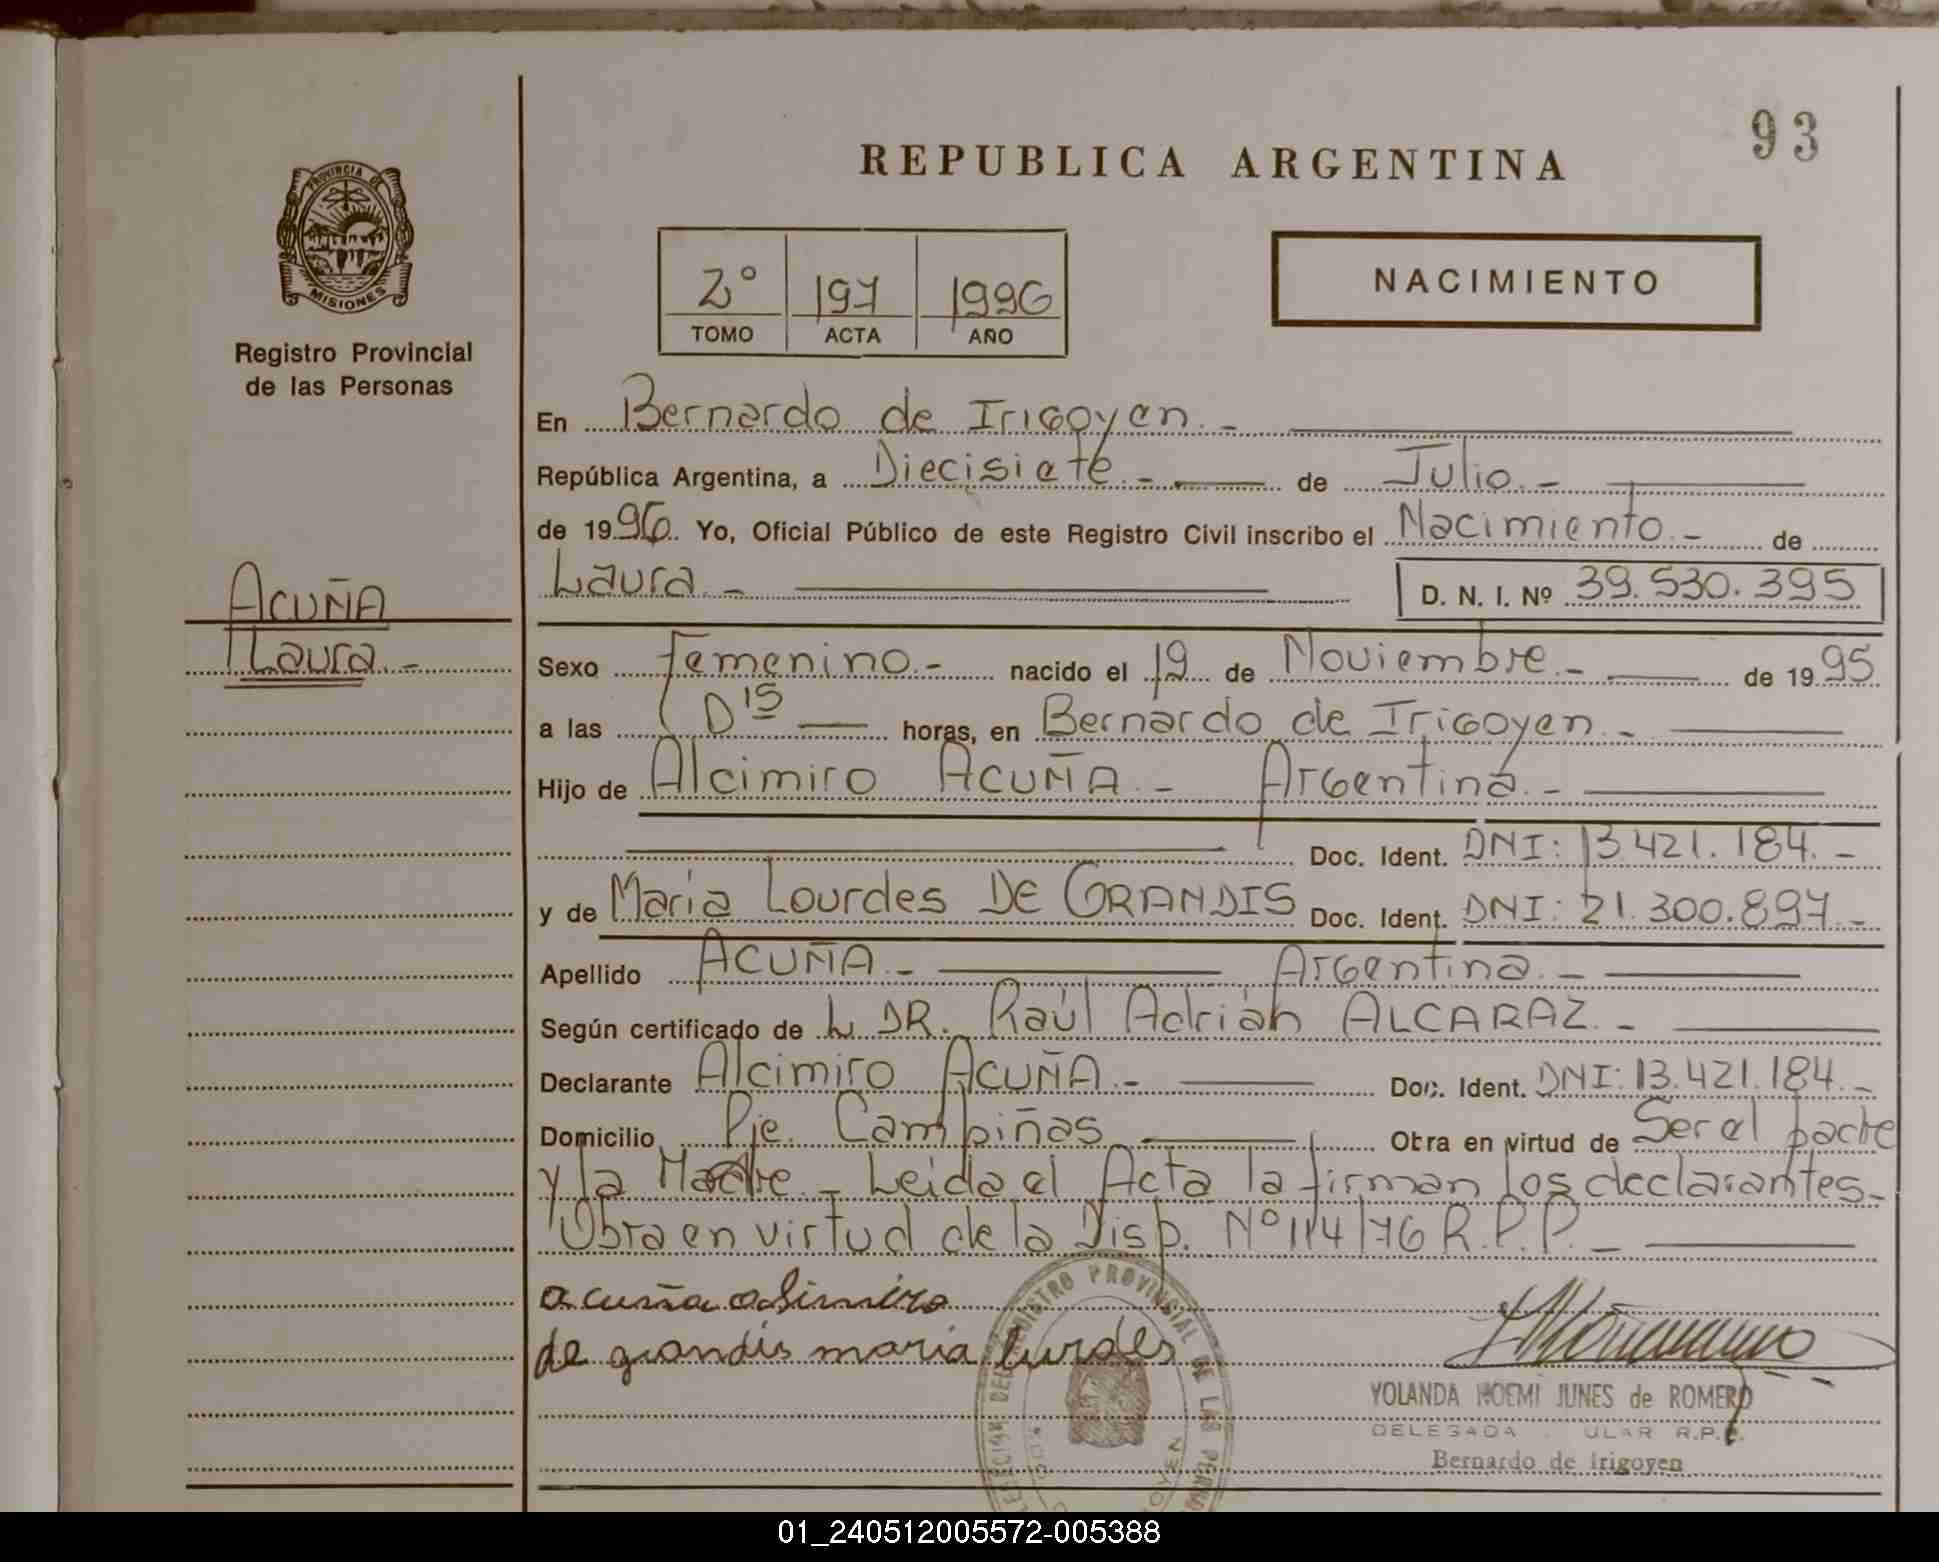 93
REPUBLICA ARGENTINA
PROVINCIA DE
MISIONES
Registro Provincial
de las Personas
2° 197 1996
TOMO ACTA AÑO
NACIMIENTO
En Bernardo de Irigoyen.-
República Argentina, a Diecisiete.- de Julio.-
de 1996. Yo, Oficial Público de este Registro Civil inscribo el Nacimiento.- de
Laura.- D. N. I. Nº 39.530.395
ACUÑA
Laura.-
Sexo Femenino.- nacido el 19 de Noviembre.- de 1995
a las 0 15 horas, en Bernardo de Irigoyen.-
Hijo de Alcimiro ACUÑA.- Argentina.-
Doc. Ident. DNI: 13.421.184.-
y de Maria Lourdes DE GRANDIS Doc. Ident. DNI: 21.300.897.-
Apellido ACUÑA.- Argentina.-
Según certificado de L DR. Raúl Adrián ALCARAZ.-
Declarante Alcimiro ACUÑA.- Doc. Ident. DNI: 13.421.184.-
Domicilio Pje. Campiñas Obra en virtud de Ser el padre
y la Madre.- Leida el Acta la firman los declarantes.-
Obra en virtud de la Disp. Nº 114/76 R.P.P.-
acuña alsimiro
de grandis maria lurdes
REGISTRO PROVINCIAL DE LAS
YOLANDA NOEMI JUNES de ROMERO
DELEGADA ULAR R.P.P.
Bernardo de Irigoyen
01_240512005572-005388